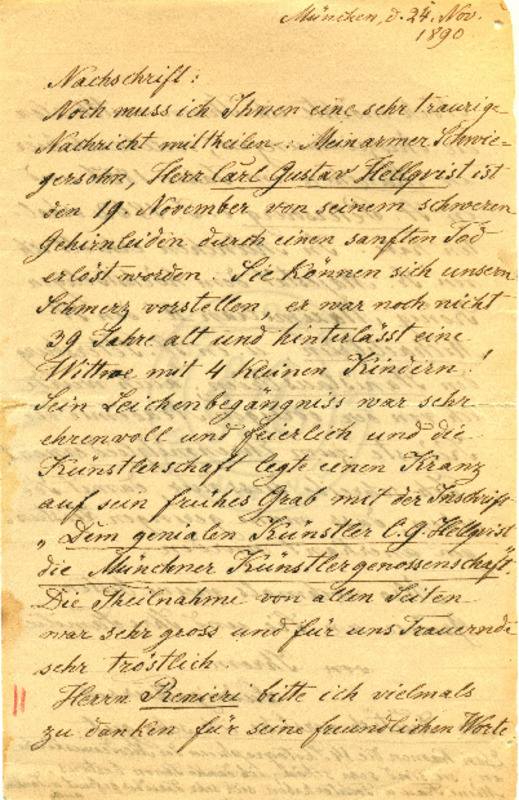 München, d. 24. Nov.
1890
Nachschrift:
Noch muss ich Ihnen eine sehr traurige
Nachricht mittheilen: Mein armer Schwie-
gersohn, Herr Carl Gustav Hellqvist ist
den 19. November von seinem schweren
Gehirnleiden durch einen sanften Tod
erlöst worden. Sie können sich unsern
Schmerz vorstellen, er war noch nicht
39 Jahre alt und hinterlässt eine
Wittwe mit 4 kleinen Kindern!
Sein Leichenbegängniss war sehr
ehrenvoll und feierlich und die
Künstlerschaft legte einen Kranz
auf sein frühes Grab mit der Inschrift
„Dem genialen Künstler C. G. Hellqvist
die Münchner Künstlergenossenschaft".
Die Theilnahme von allen Seiten
war sehr gross und für uns Trauernde
sehr tröstlich.
Herrn Renieri bitte ich vielmals
zu danken für seine freundlichen Worte